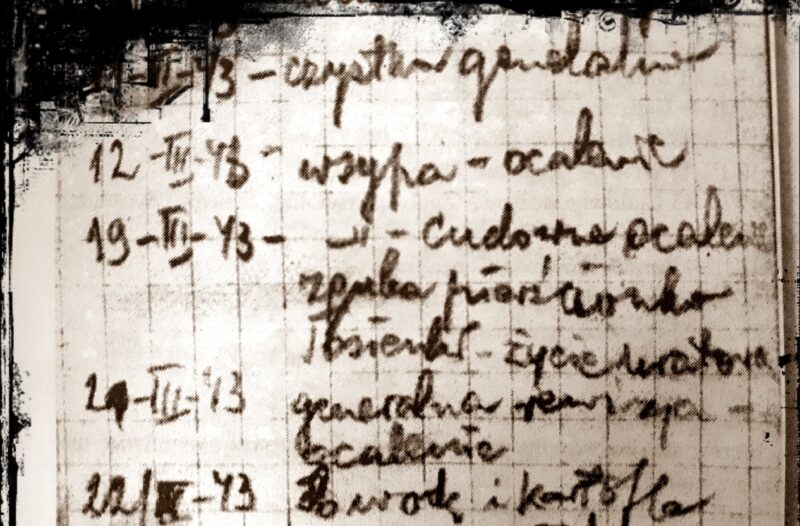 -II-43 - czystka generalna
12-III-43 - wsypa - ocalenie
19-III-43 - -"- - Cudowne ocalenie
zguba pierścionka
Tosieńki - życie
-III-43 generalna rewizja -
ocalenie
22/III-43 Za wodę i kartofla